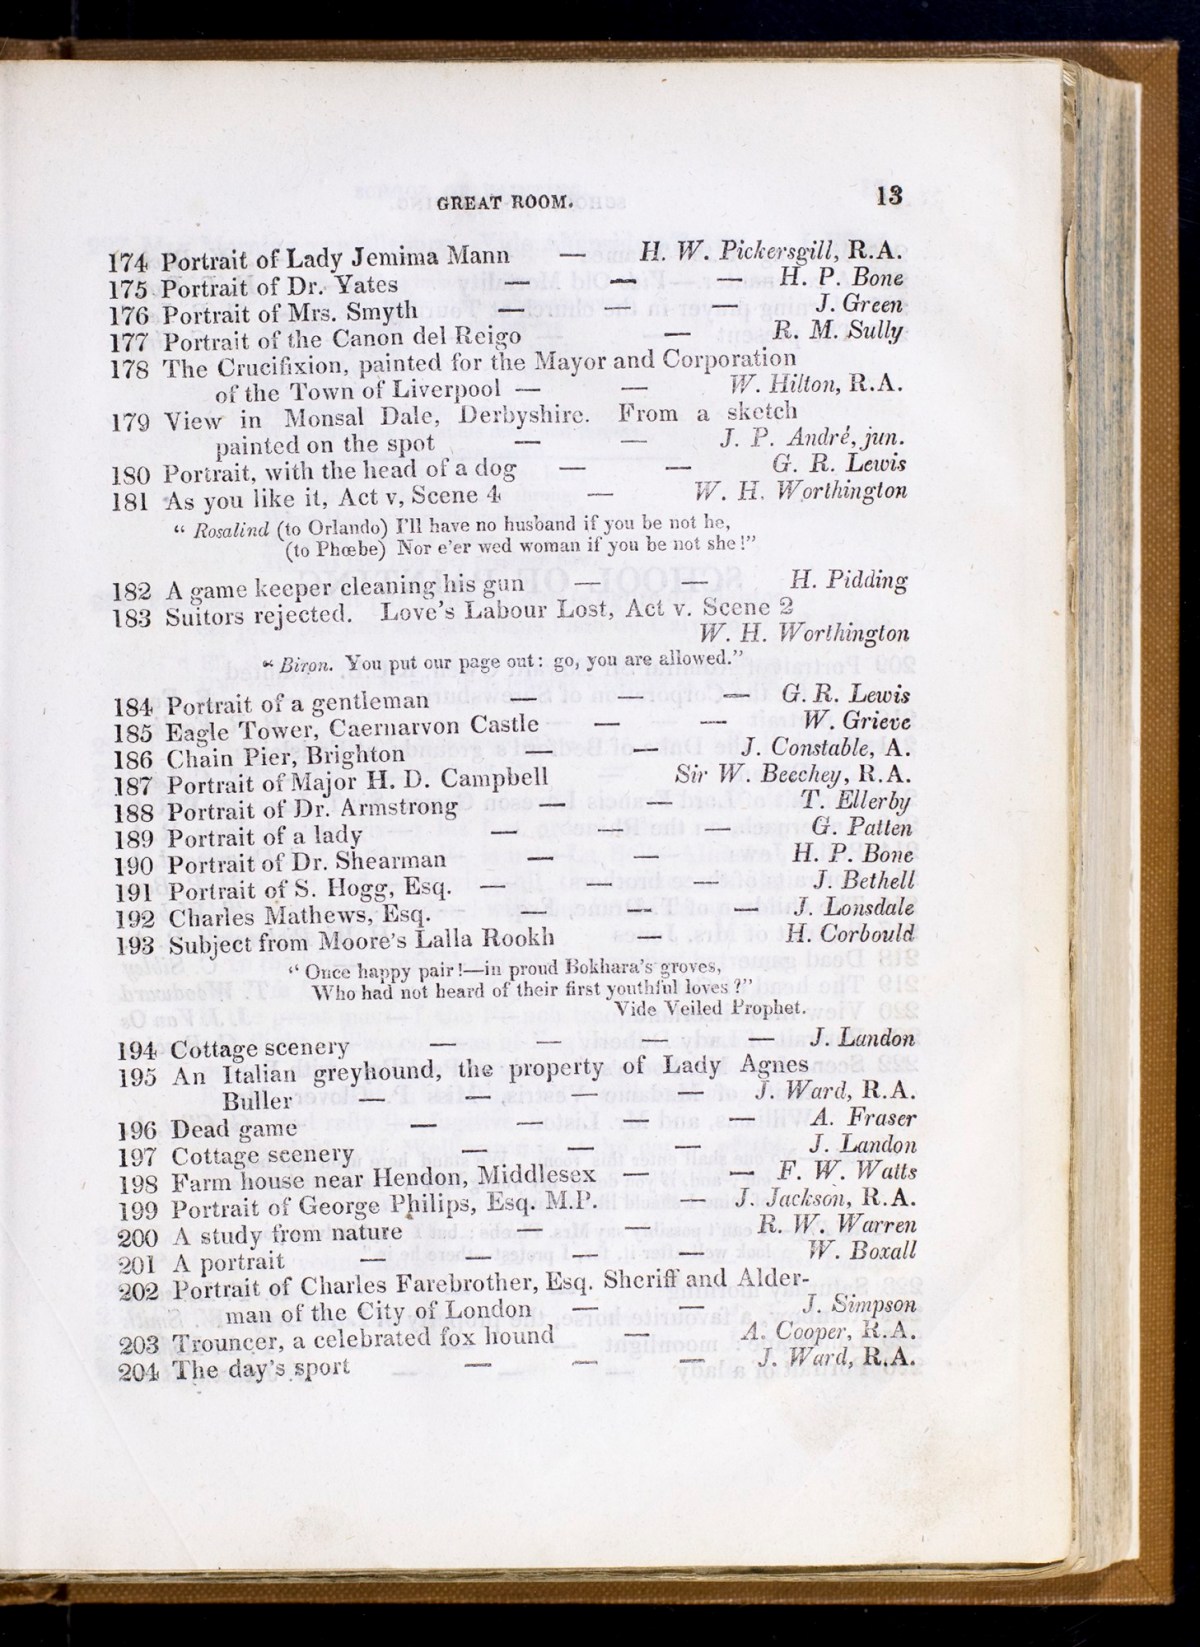 GREAT ROOM. 13
174 Portrait of Lady Jemima Mann — H. W. Pickersgill, R.A.
175 Portrait of Dr. Yates — — — H. P. Bone
176 Portrait of Mrs. Smyth — — — J. Green
177 Portrait of the Canon del Reigo — R. M. Sully
178 The Crucifixion, painted for the Mayor and Corporation
of the Town of Liverpool — — W. Hilton, R.A.
179 View in Monsal Dale, Derbyshire. From a sketch
painted on the spot — — J. P. André, jun.
180 Portrait, with the head of a dog — — G. R. Lewis
181 As you like it, Act v, Scene 4 — W. H. Worthington
“ Rosalind (to Orlando) I’ll have no husband if you be not he,
(to Phœbe) Nor e’er wed woman if you be not she!”
182 A game keeper cleaning his gun — — H. Pidding
183 Suitors rejected. Love’s Labour Lost, Act v. Scene 2
W. H. Worthington
“ Biron. You put our page out: go, you are allowed.”
184 Portrait of a gentleman — — — G. R. Lewis
185 Eagle Tower, Caernarvon Castle — — W. Grieve
186 Chain Pier, Brighton — J. Constable, A.
187 Portrait of Major H. D. Campbell Sir W. Beechey, R.A.
188 Portrait of Dr. Armstrong — — T. Ellerby
189 Portrait of a lady — — — G. Patten
190 Portrait of Dr. Shearman — — H. P. Bone
191 Portrait of S. Hogg, Esq. — — — J. Bethell
192 Charles Mathews, Esq. — — — J. Lonsdale
193 Subject from Moore’s Lalla Rookh — H. Corbould
“ Once happy pair!—in proud Bokhara’s groves,
Who had not heard of their first youthful loves?”
Vide Veiled Prophet.
194 Cottage scenery — — — — J. Landon
195 An Italian greyhound, the property of Lady Agnes
Buller — — — — J. Ward, R.A.
196 Dead game — — — — A. Fraser
197 Cottage scenery — — — J. Landon
198 Farm house near Hendon, Middlesex — — F. W. Watts
199 Portrait of George Philips, Esq. M.P. — J. Jackson, R.A.
200 A study from nature — — R. W. Warren
201 A portrait — — — — W. Boxall
202 Portrait of Charles Farebrother, Esq. Sheriff and Alder-
man of the City of London — — J. Simpson
203 Trouncer, a celebrated fox hound — A. Cooper, R.A.
204 The day’s sport — — — J. Ward, R.A.